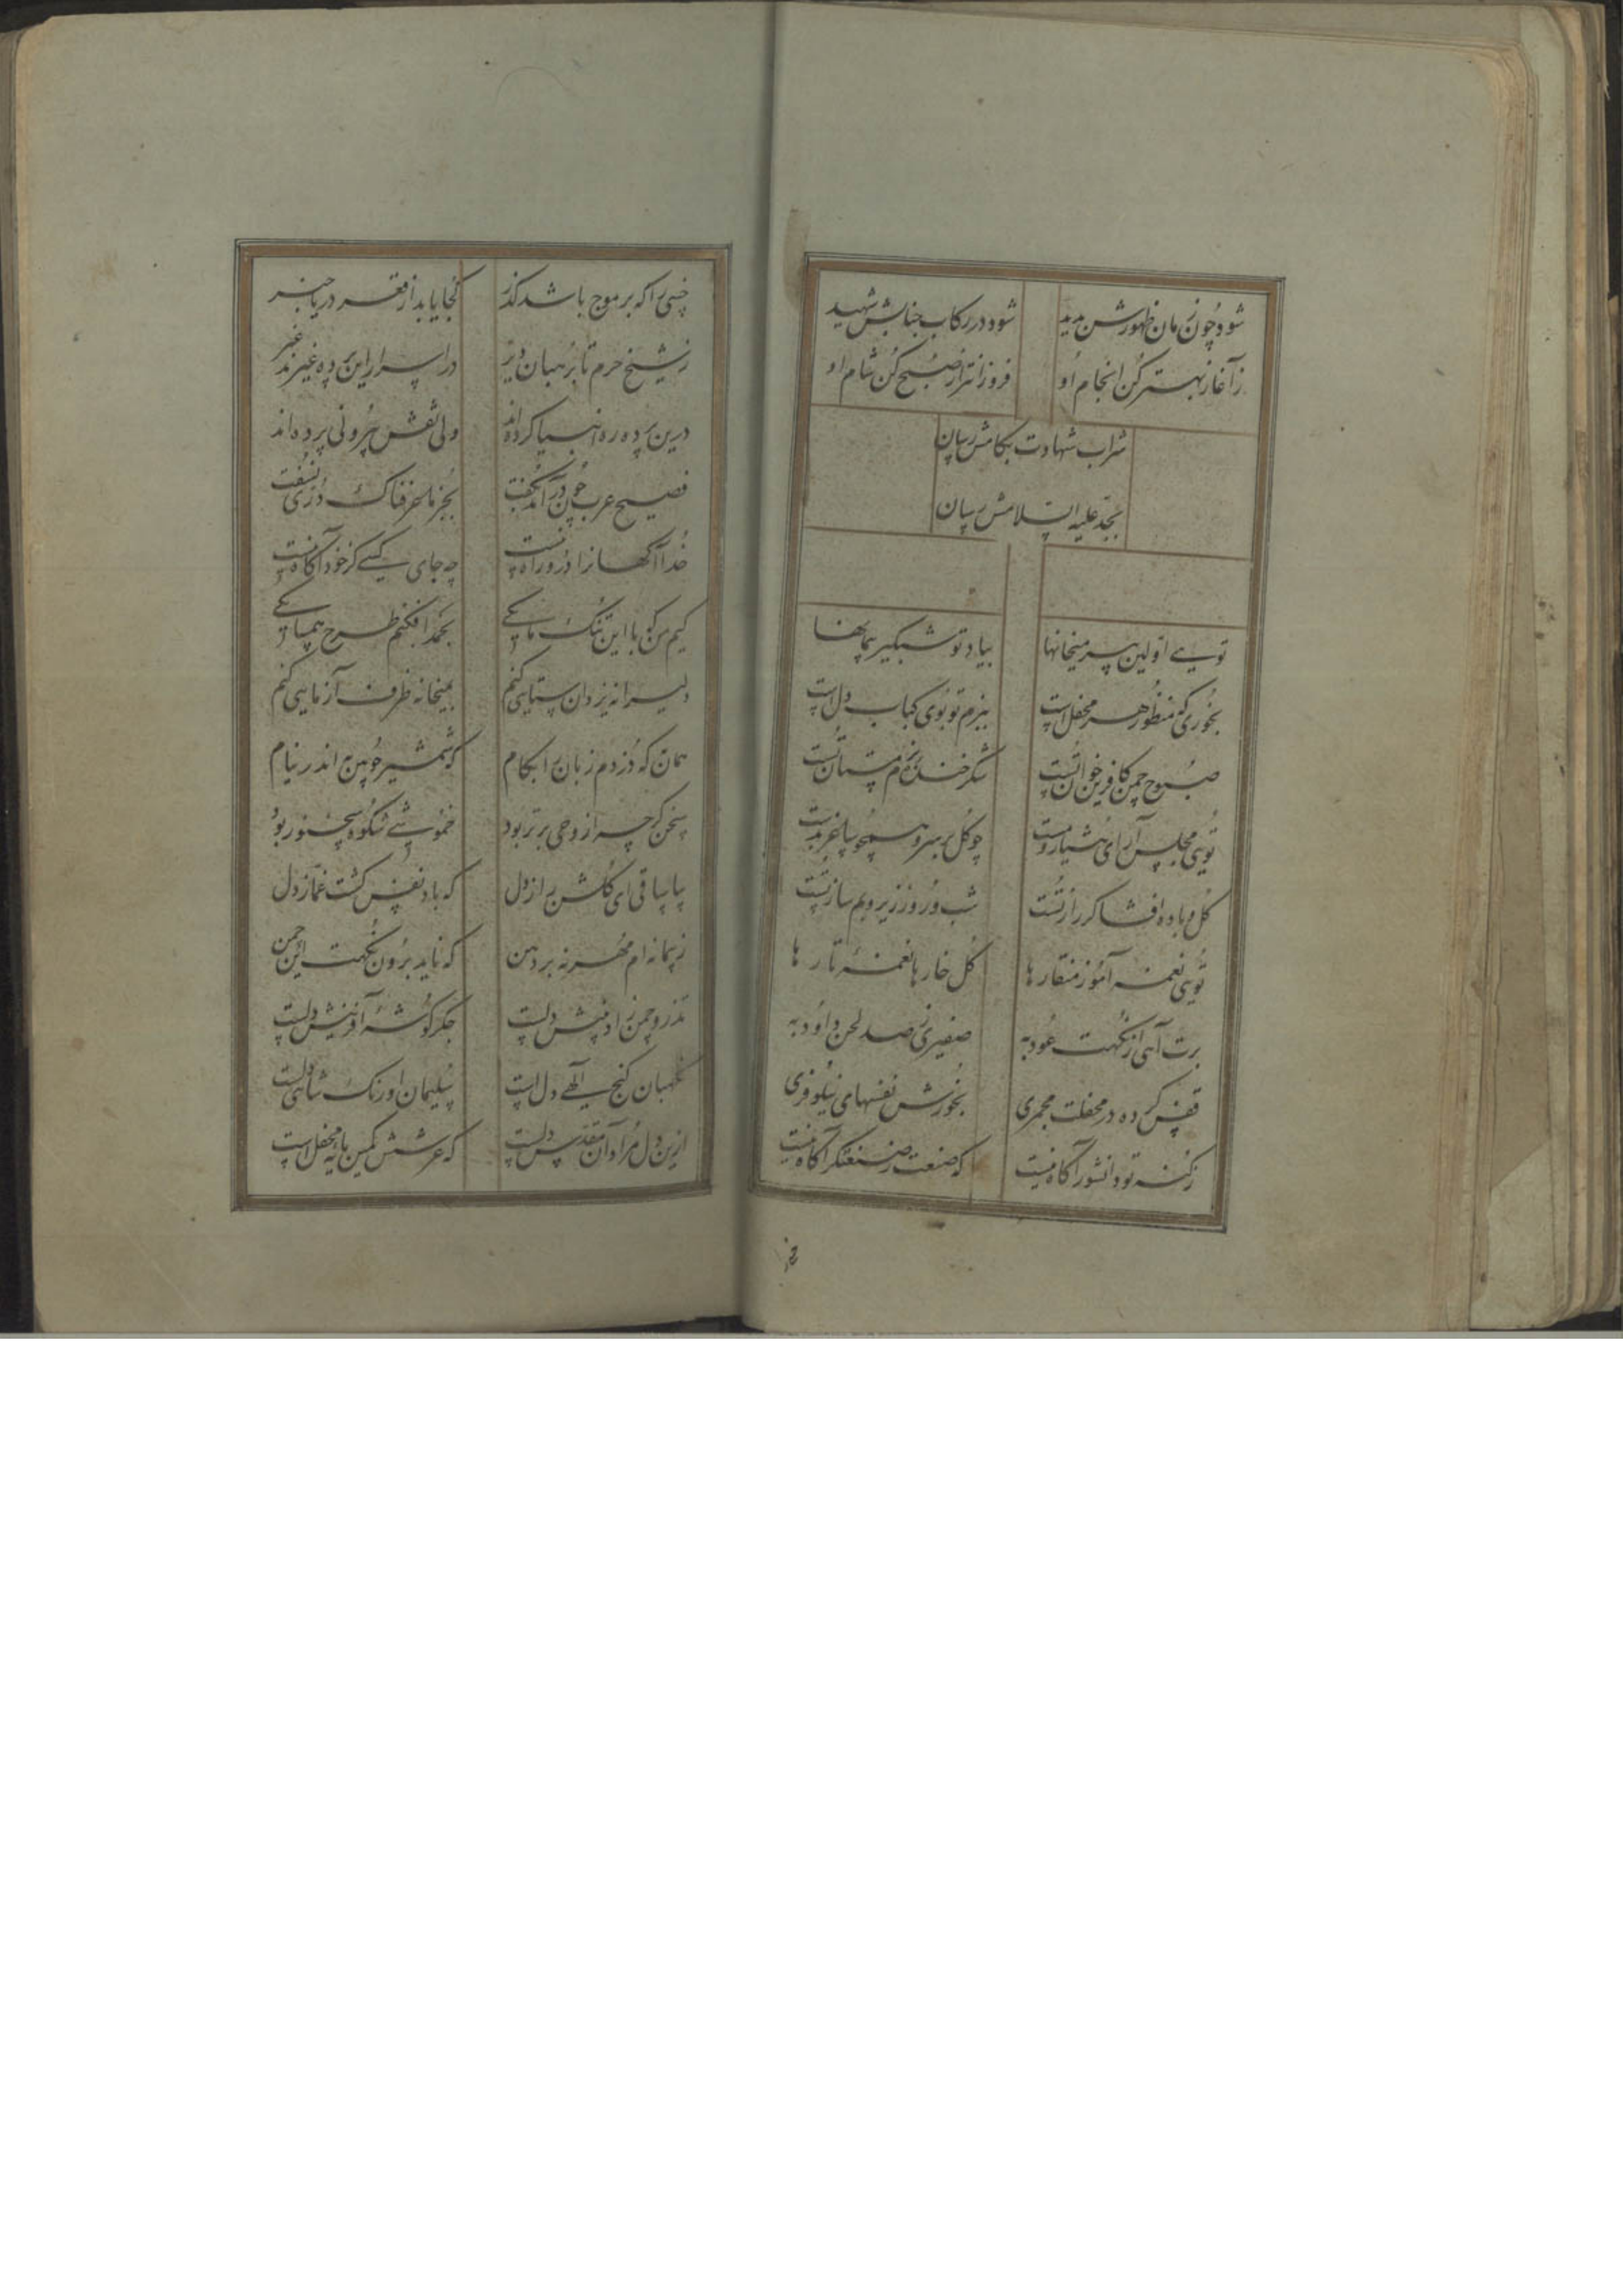 شود چون زمان ظهورش پدید شود در رکاب جنابش شهید
ز آغاز بهتر کن انجام او فروزانتر از صبح کن شام او
شراب شهادت بکامش رسان
بجد علیه السلامش رسان
تویی اولین پیر میخانها بیاد تو شبگیر پیمانها
بخوری که منظور هر محفل است ببزم تو بوی کباب دل است
صبوح چمن کافرین خوان تست شکرخند بزم مستان تست
تویی مجلس آرای هشیار و مست چو گل بر سر و همچو ساغر بدست
گل و باده افشاگر راز تست شب و روز زیر و بم ساز تست
تویی نغمه آموز منقارها گل خارها نغمهٔ تارها
برت آهی از نکهت عود به صفیری ز صد لحن داود به
قفس کرده در محفلت مجمری بخورش نفسهای نیلوفری
ز کنه تو دانشور آگاه نیست که صنعت ز صنعتگر آگاه نیست
خسی را که بر موج باشد گذر کجا یابد از قعر دریا خبر
ز شیخ حرم تا برهبان دیر در اسرار این پرده غیرند غیر
درین پرده ره انبیا کرده‌اند ولی نقش بیرونی پرده‌اند
فصیح عرب چون در آمد بگفت بجز ما عرفناک دری نسفت
خدا آگهانرا درو راه نیست چه جای کسی کز خود آگاه نیست
کیم من که با این تنک مایگی بخمد افکنم طرح همسایگی
دلیرانه یزدان ستایی کنم بمیخانه ظرف آزمایی کنم
همان که دزدم زبان را بکام که شمشیر چوبین به اندر نیام
سخن گرچه از وحی برتر بود خموشی شکوه سخنور بود
بیا ساقی ای گلشن راز دل که باد نفس گشت غماز دل
ز پیمانه‌ام مهر نه بر دهن که ناید برون نکهت این چمن
تذرو چمن زاد بینش دلست جگر گوشهٔ آفرینش دلست
نگهبان گنج الهی دل است سلیمان اورنگ شاهی دلست
ازین دل مراد آن مقدس دلست که عرشش کمین پایه محفل است